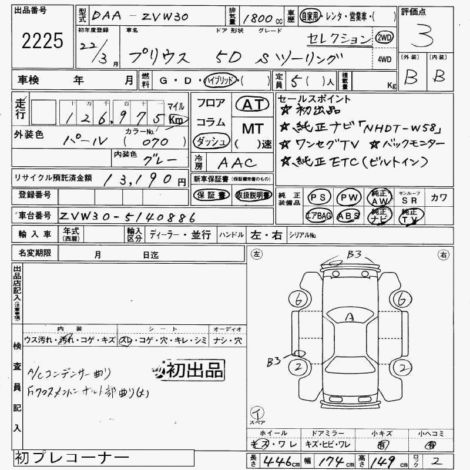 出品番号
2225
型式 DAA-ZVW30
排気量 1800cc
車歴 自家用・レンタ・営業車・( )
評価点
3
初年度登録 22/3
ドア 形状 グレード
プリウス 5D Sツーリング
セレクション
2WD
4WD
外装 B
内装 B
車検 年 月
燃料 G・D・ハイブリッド( )
定員 5( )人
積載量 Kg
走行 十万 万 千 百 十
126,975 マイル Km
外装色 パール
カラーNo. (070)
内装色 グレー
リサイクル預託済金額 13,190円
フロア
コラム
ダッシュ
AT
MT
( )速
冷房 AAC
セールスポイント
☆初出品
☆純正ナビ「NHDT-W58」
☆ワンセグTV ☆バックモニター
☆純正ETC(ビルトイン)
登録番号
新車保証書(保証継承書のもの)
保証書 取扱説明書
純正装備品
PS PW 純正AW サンルーフSR カワ
エアBAG ABS 純正ナビ 純正TV
車台番号 ZVW30-5140886
輸入車 年式(西暦)
輸入区分 ディーラー・並行
ハンドル 左・右
シリアルNo.
名変期限 月 日迄
出品店記入(注意事項)
左 右
B3
6 6
A
B3
2 2
イ
スペア
検査員記入
内装 シート オーディオ
ウス汚れ・汚れ・コゲ・キズ スレ・コゲ・穴・キレ・シミ ナシ・穴
A/Cコンデンサー曲り
初出品
初プレコーナー
ホイール ドアミラー 小キズ 小ヘコミ
キズ・ワレ キズ・ヒビ・ワレ 有 有
長さ 446cm 幅 174cm 高さ 149cm 2